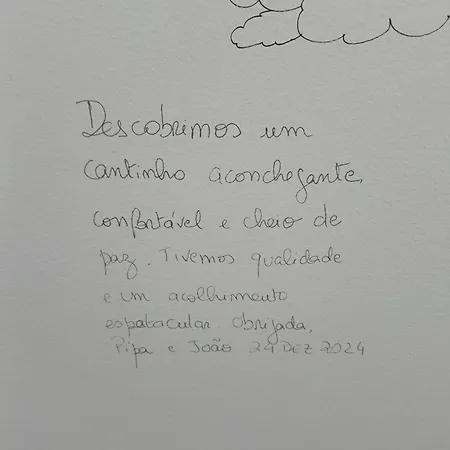 Descobrimos um
cantinho aconchegante,
confortável e cheio de
paz. Tivemos qualidade
e um acolhimento
espatacular. Obrijada,
Pipa e João 24 DEZ 2024